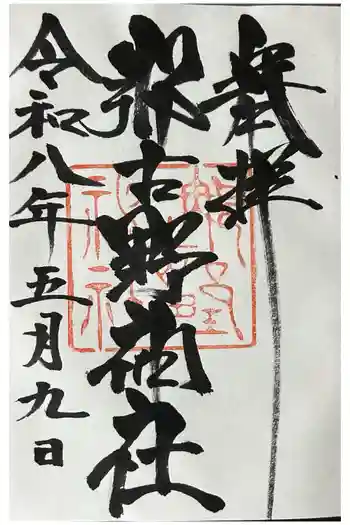 奉拝
那古野神社
令和八年五月九日